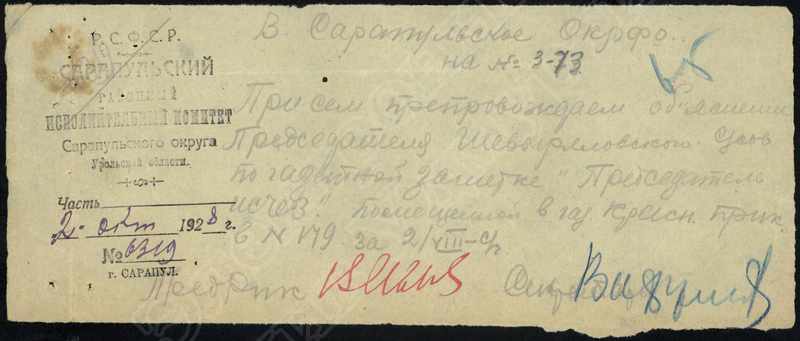 Р. С. Ф. С. Р.
САРАПУЛЬСКИЙ
РАЙОННЫЙ
ИСПОЛНИТЕЛЬНЫЙ КОМИТЕТ
Сарапульского округа
Уральской области.
Часть
2 окт 1928 г.
№ 6319
г. САРАПУЛ.
В Сарапульское Окрфо.
на № 3-73
При сем препровождаем об'яснение
Председателя Шевыряловского
по газетной заметке "Председатель
исчез" помещенной в газ. Красн. Прик.
в N 179 за 2/VIII-с/г
Предрик
Секретарь